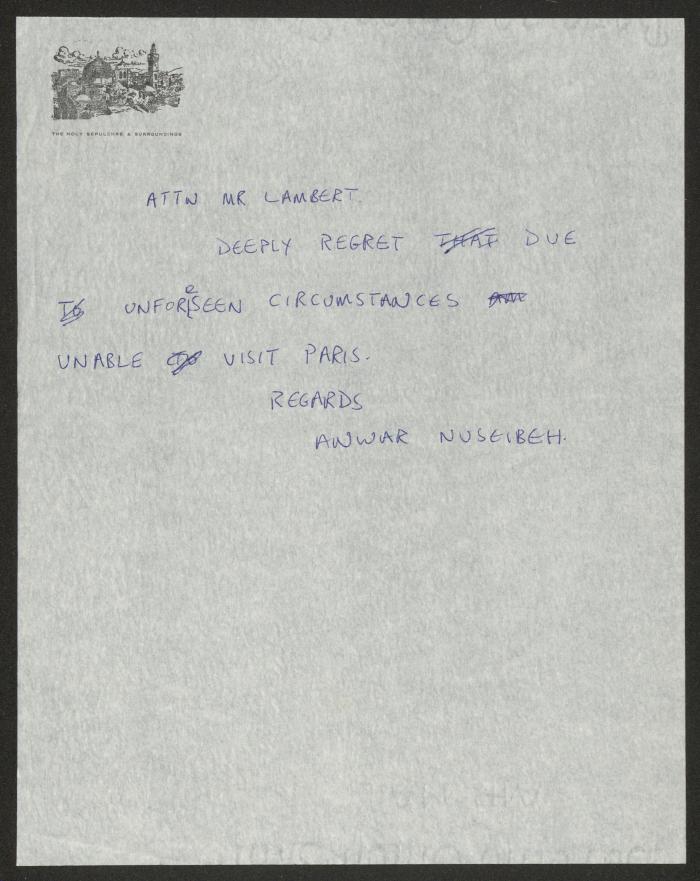 THE HOLY SEPULCHRE & SURROUNDINGS
ATTN MR LAMBERT.
DEEPLY REGRET THAT DUE
TO UNFORESEEN CIRCUMSTANCES AM
UNABLE TO VISIT PARIS.
REGARDS
ANWAR NUSEIBEH.